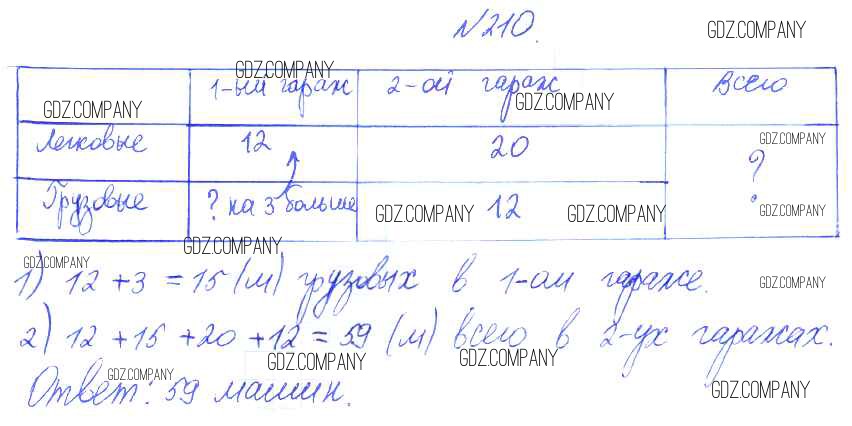 №210.
GDZ.COMPANY
GDZ.COMPANY
1-ый гараж 2-ой гараж Всего
GDZ.COMPANY GDZ.COMPANY
Легковые 12 20 ?
GDZ.COMPANY
Грузовые ? на 3 больше GDZ.COMPANY 12 GDZ.COMPANY GDZ.COMPANY
GDZ.COMPANY
GDZ.COMPANY
1) 12 + 3 = 15 (м) грузовых в 1-ом гараже.
GDZ.COMPANY
2) 12 + 15 + 20 + 12 = 59 (м) всего в 2-ух гаражах.
GDZ.COMPANY GDZ.COMPANY
GDZ.COMPANY
Ответ: 59 машин.
GDZ.COMPANY